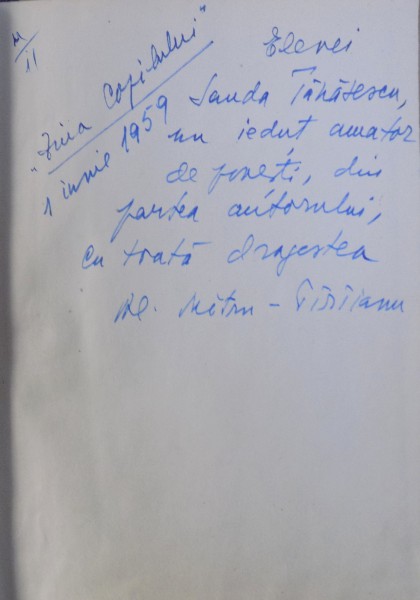 "Ziua Copilului"
1 iunie 1959
Elevei
Sanda Tănăsescu,
un ieduț amator
de povești, din
partea autorului,
cu toată dragostea
Al. Mitru - Pîrîianu